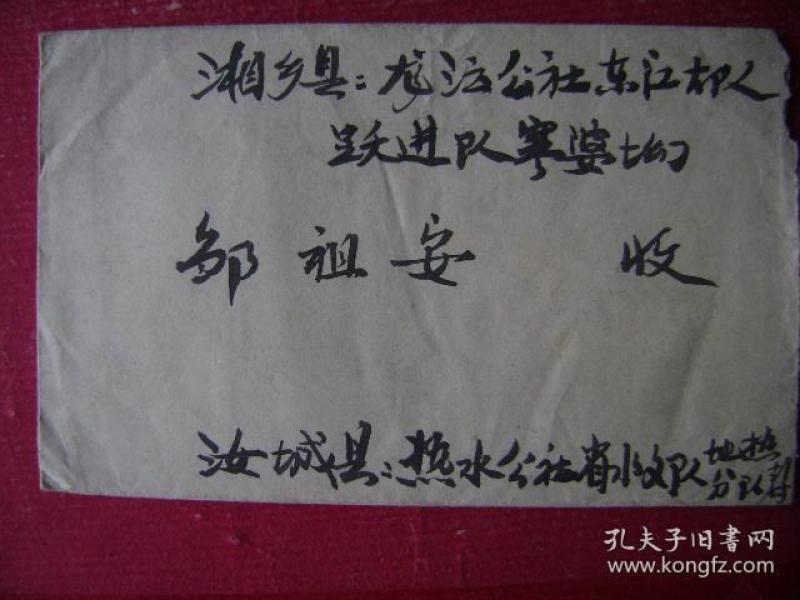 湘乡县：龙洞公社东江大队
跃进队寥婆坳
邹祖安 收
汝城县：热水公社省水文队地热
分队封
孔夫子旧书网
www.kongfz.com